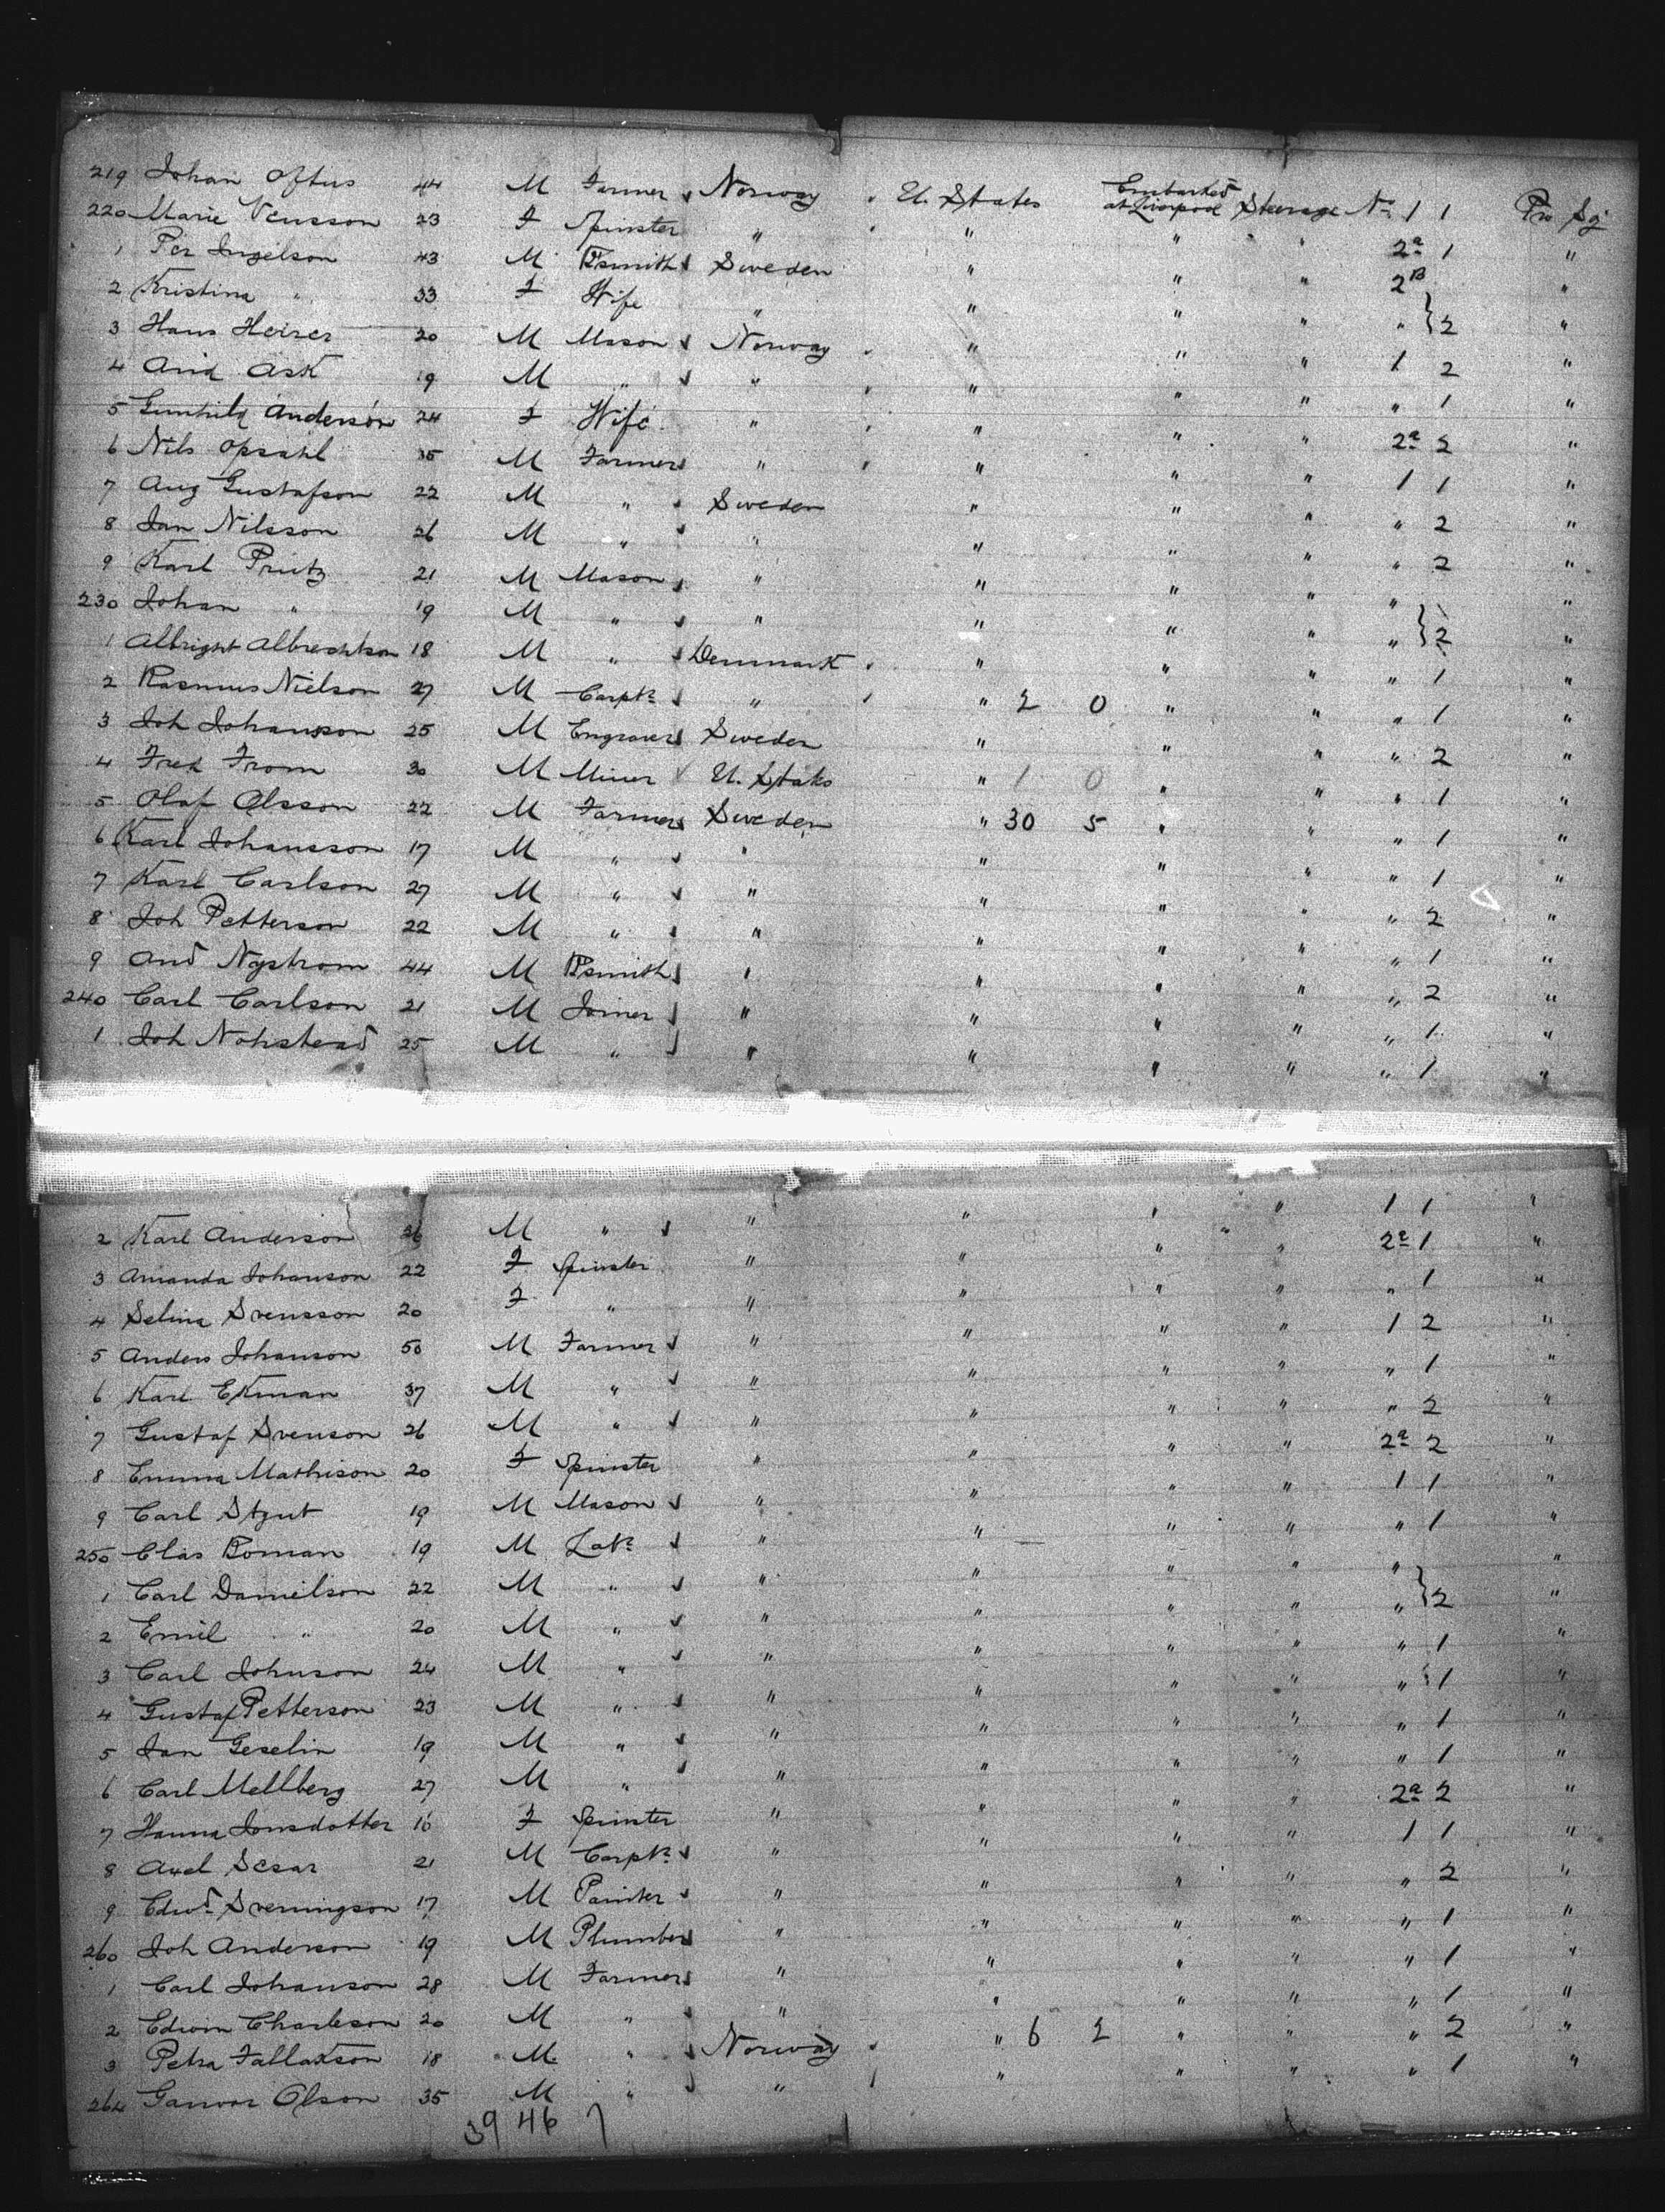 219 Johan Oftus 44 M Farmer Norway U. States Embarked at Liverpool Steerage No 1 1 Pro Sj
220 Marie 23 F Spinster " " " " 2a 1 "
1 Per Ingelson 43 M Bsmith Sweden " " " 2B "
2 Kristina " 33 F Wife " " " " " } 2 "
3 Hans Heirer 20 M Mason Norway " " " 1 2 "
4 Arid Ask 19 M " " " " " " 1 "
5 Gunhild Anderson 24 F Wife " " " " 2a 2 "
6 Nils Opsahl 35 M Farmer " " " " 1 1 "
7 Aug Gustafson 22 M " Sweden " " " " 2 "
8 Jan Nilsson 26 M " " " " " " 2 "
9 Karl Prutz 21 M Mason " " " " " "
230 Johan " 19 M " " " " " " } 2 "
1 Albright Albrechtson 18 M " Denmark " " " " 1 "
2 Rasmus Nielson 27 M Carptr " " 2 0 " " " 1 "
3 Joh Johansson 25 M Engraver Sweden " " " " 2 "
4 Fred From 30 M Miner U. States " 1 0 " " " 1 "
5 Olaf Olsson 22 M Farmer Sweden " 30 5 " " " 1 "
6 Karl Johansson 17 M " " " " " " 1 "
7 Karl Carlson 27 M " " " " " " 2 "
8 Joh Petterson 22 M " " " " " " 1 "
9 And Nystrom 44 M Bsmith " " " " " 2 "
240 Carl Carlson 21 M Joiner " " " " " 1 "
1 Joh Nohstead 25 M " " " " " " 1 "
2 Karl Anderson 26 M " " " " " 1 1 "
3 Amanda Johanson 22 F Spinster " " " " 2a 1 "
4 Selina Svensson 20 F " " " " " " 1 "
5 Anders Johanson 50 M Farmer " " " " 1 2 "
6 Karl Ekman 37 M " " " " " " 1 "
7 Gustaf Svenson 26 M " " " " " " 2 "
8 Emma Mathison 20 F Spinster " " " " 2a 2 "
9 Carl 19 M Mason " " " " 1 1 "
250 Clas Roman 19 M Labr " " " " " 1 "
1 Carl Danielson 22 M " " " " " " "
2 Emil " 20 M " " " " " " } 2 "
3 Carl Johnson 24 M " " " " " " 1 "
4 Gustaf Petterson 23 M " " " " " " 1 "
5 Jan Geselin 19 M " " " " " " 1 "
6 Carl Mellberg 27 M " " " " " " 1 "
7 Hanna Jonsdotter 16 F Spinster " " " " 2a 2 "
8 Axel Sesar 21 M Carptr " " " " 1 1 "
9 Edwd Svenningson 17 M Painter " " " " " 2 "
260 Joh Anderson 19 M Plumber " " " " " 1 "
1 Carl Johanson 28 M Farmer " " " " " 1 "
2 Edwin Charleson 20 M " " " " " " 1 "
3 Petra Fallakson 18 M " Norway " 6 2 " " " 2 "
264 Olson 35 M " " " " " " 1 "
39 46 7